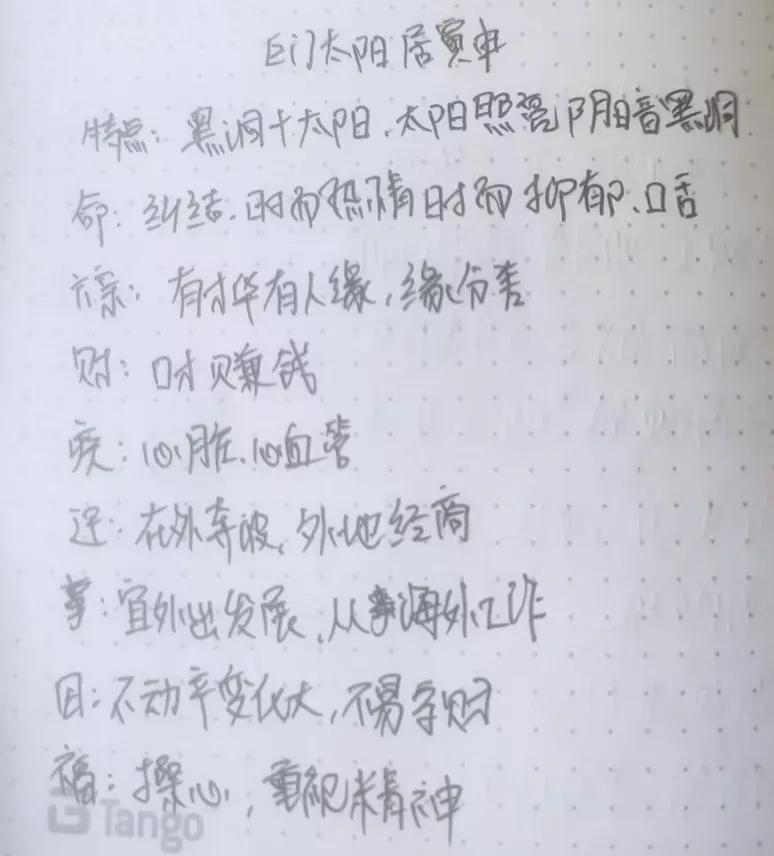 巨门太阳居寅申
特点：黑洞+太阳，太阳照亮阴暗黑洞
命：纠结.时而热情时而抑郁、口舌
有才华有人缘，缘分
财：口才赚钱
疾：心脏.心血管
迁：在外奔波，外地经商
事：宜外出发展，从事海外工作
田：不动产变化大，不易守财
福：操心，重视精神
Tango